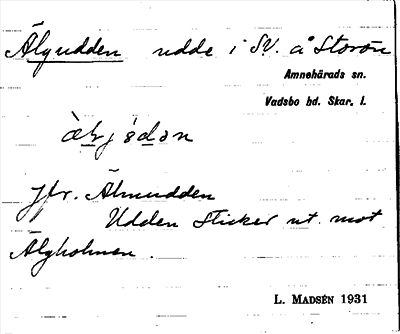 Älgudden udde i SV. å Storön
Amnehärads sn.
Vadsbo hd. Skar. l.
jfr. Älmudden
Udden sticker ut mot
Älgholmen.
L. MADSÉN 1931